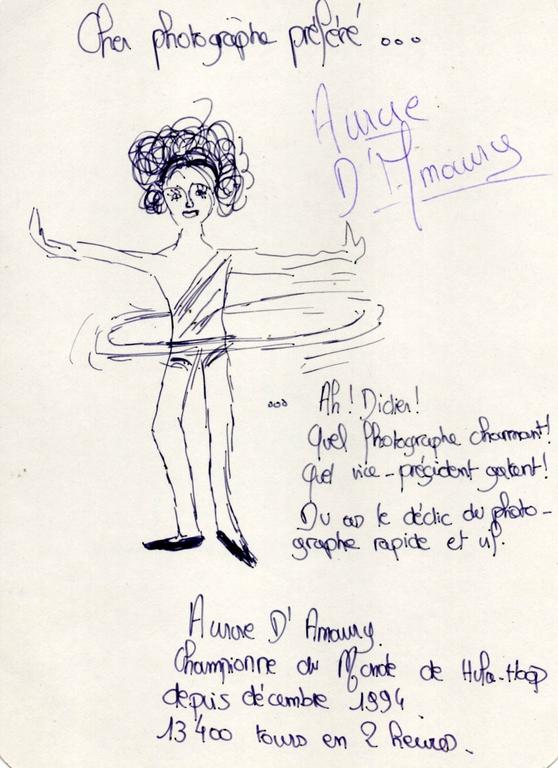 Cher photographe préféré ...
Aurore
D'Amaury
... Ah ! Didier !
Quel Photographe charmant !
Quel vice-président galant !
Du as le déclic du photo-
graphe rapide et vif.
Aurore D'Amaury
Championne du Monde de Hula-Hoop
depuis décembre 1994
13'400 tours en 2 heures.